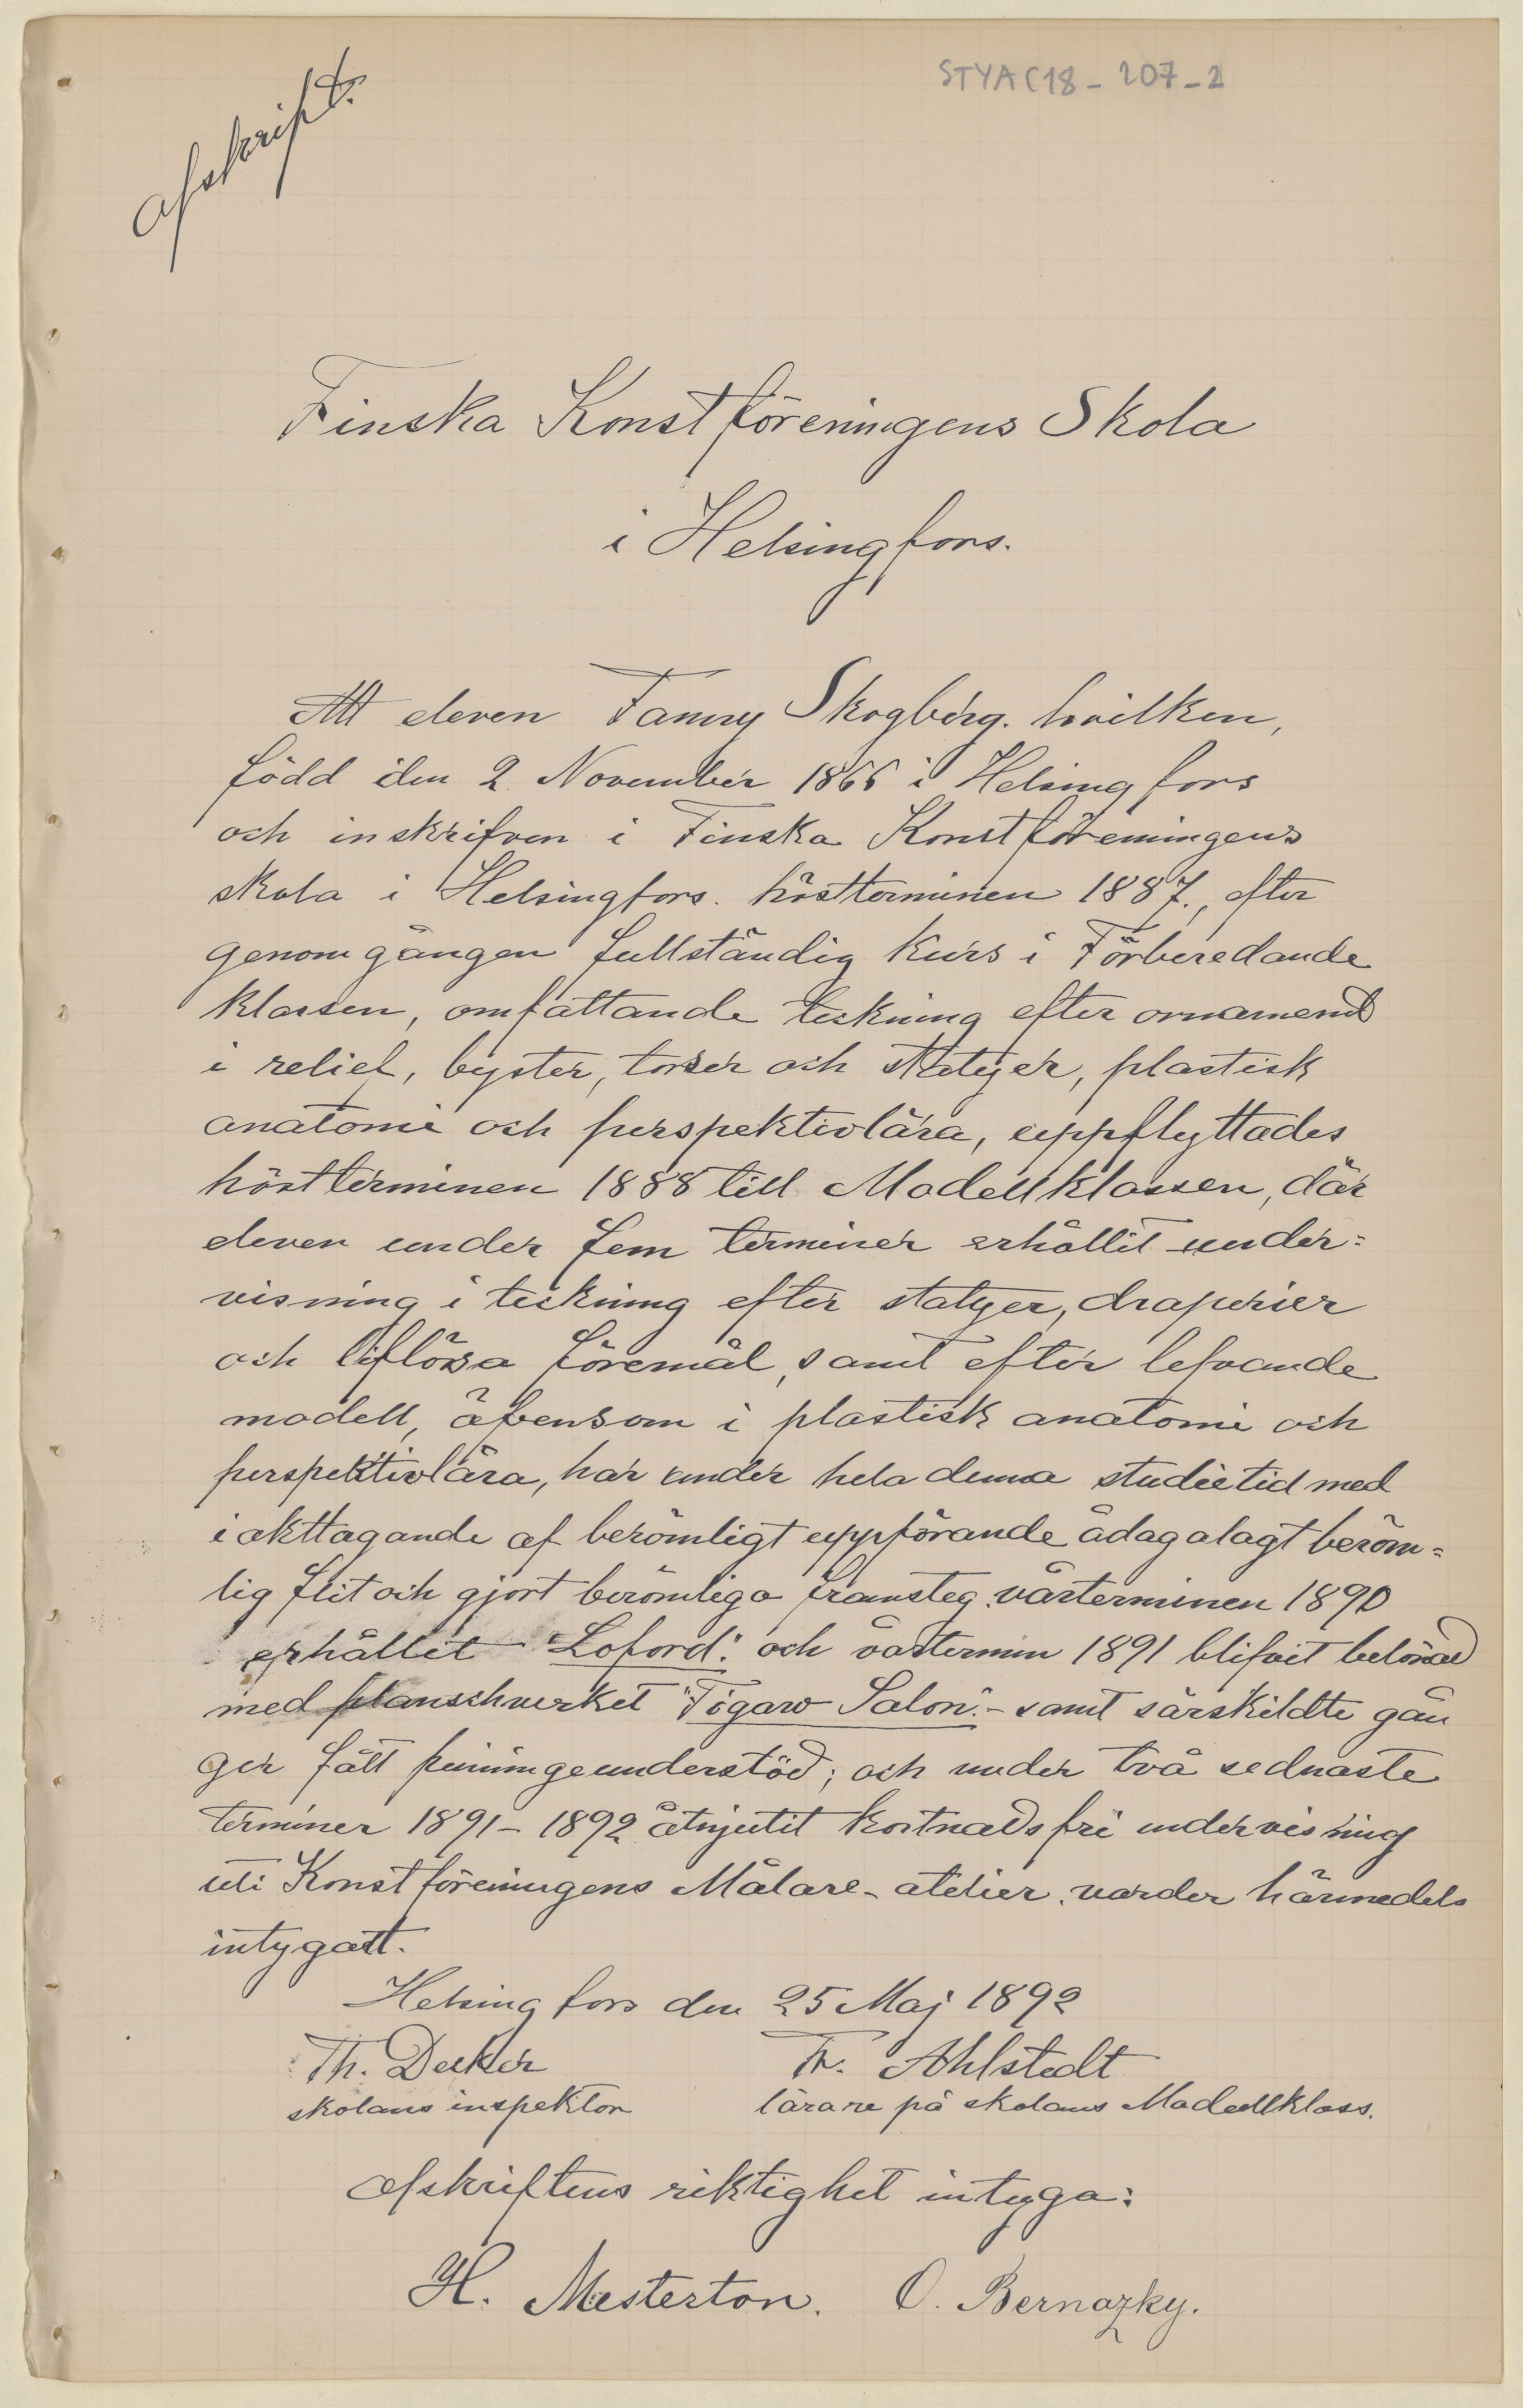 STYA C18 - 207 - 2
Afskrift.
Finska Konstföreningens Skola
i Helsingfors.
Att eleven Fanny Skogberg. hvilken,
född den 2 November 1866 i Helsingfors
och inskrifven i Finska Konstföreningens
skola i Helsingfors. höstterminen 1887., efter
genomgången fullständig kurs i Förberedande
klassen, omfattande teckning efter ornament
i relief, byster, torser och statyer, plastisk
anatomi och perspektivlära, uppflyttades
höstterminen 1888 till Modellklassen, där
eleven under fem terminer erhållit under=
visning i teckning efter statyer, draperier
och liflösa föremål, samt efter lefvande
modell, äfvensom i plastisk anatomi och
perspektivlära, har under hela denna studietid med
iakttagande af berömligt uppförande ådagalagt beröm=
lig flit och gjort berömliga framsteg. vårterminen 1890
erhållit "Loford". och vårtermin 1891 blifvit belönad
med planschverket "Figaro Salon". - samt särskildte gån
ger fått penningeunderstöd; och under två sednaste
terminer 1891 - 1892 åtnjutit kostnadsfri undervisning
uti Konstföreningens Målare-atelier. varder härmedels
intygatt.
Helsingfors den 25 Maj 1892
Th. Decker Fr. Ahlstedt
skolans inspektor lärare på skolans Modellklass.
Afskriftens riktighet intyga:
H. Mesterton. O. Bernazky.